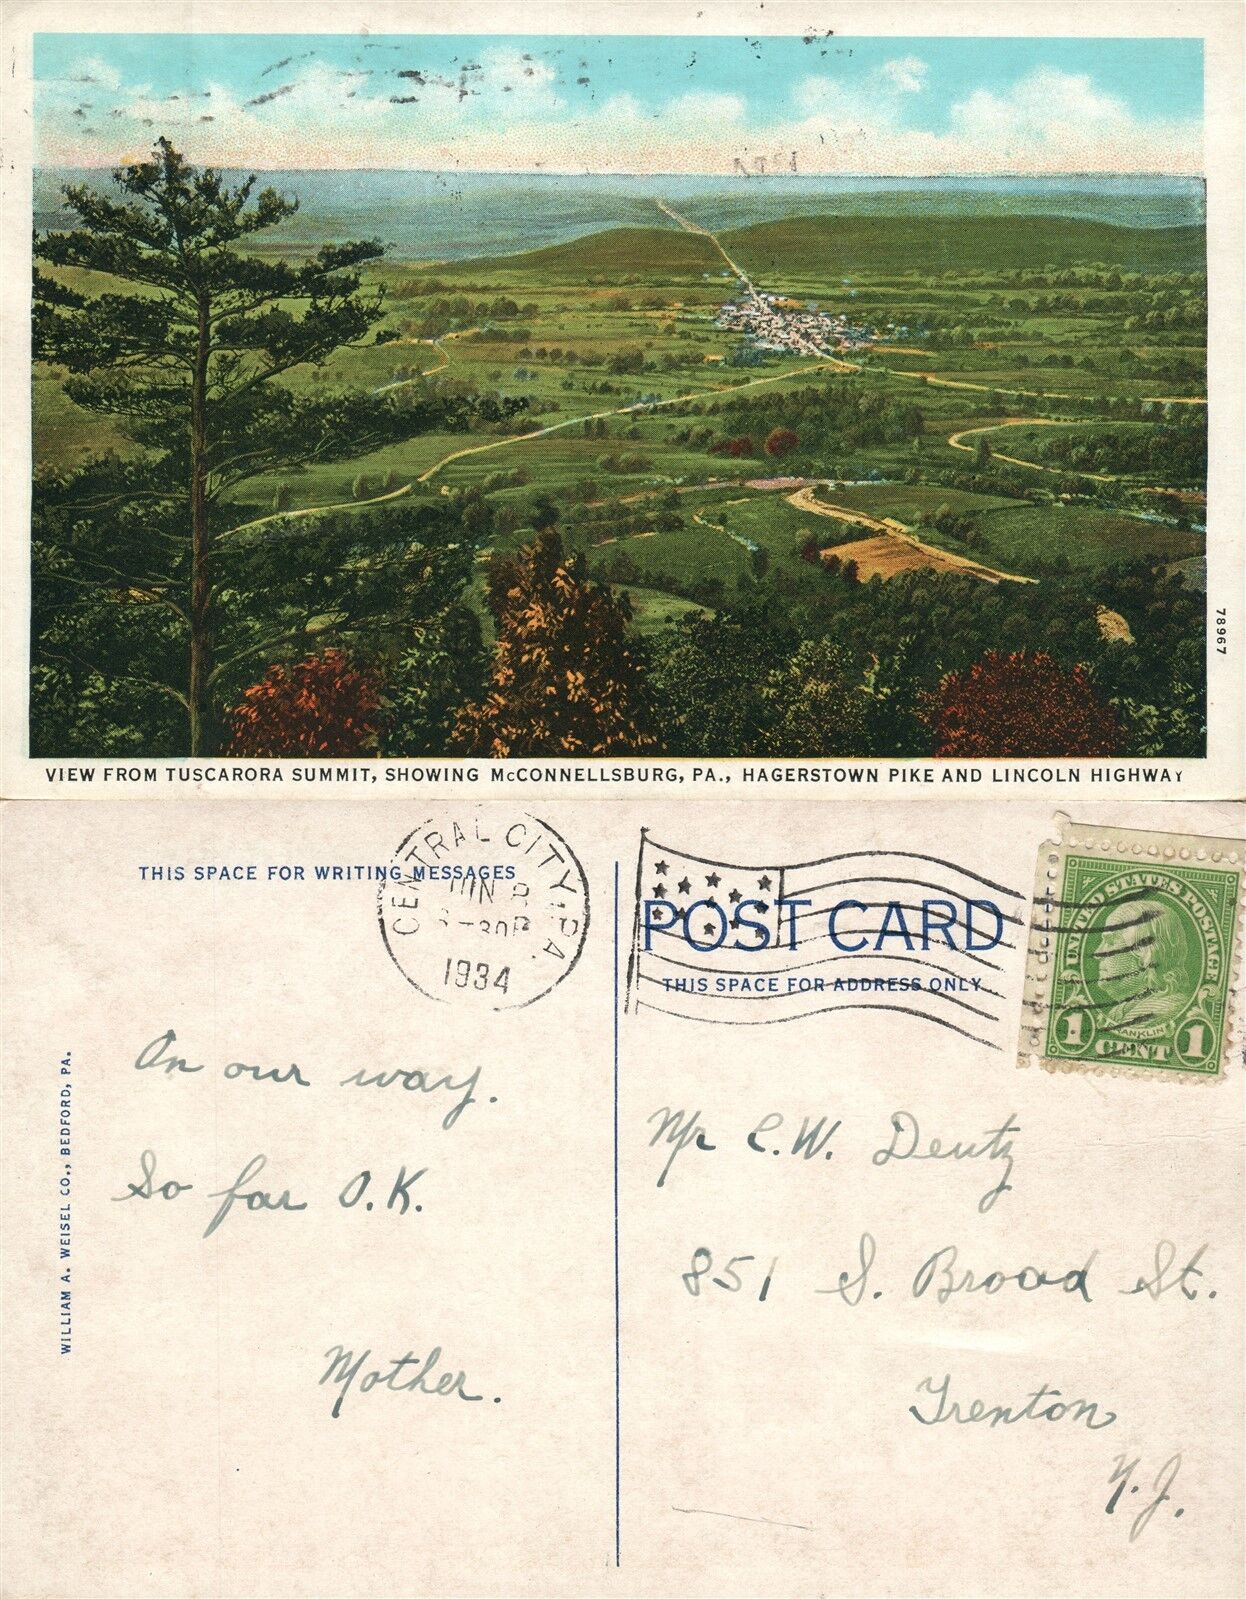 78967
VIEW FROM TUSCARORA SUMMIT, SHOWING McCONNELLSBURG, PA., HAGERSTOWN PIKE AND LINCOLN HIGHWAY
THIS SPACE FOR WRITING MESSAGES
CENTRAL CITY, PA.
JUN 8
-30P
1934
POST CARD
THIS SPACE FOR ADDRESS ONLY
UNITED STATES POSTAGE
FRANKLIN
1 CENT 1
On our way.
So far O.K.
Mother.
Mr C.W. Deutz
851 S. Broad St.
Trenton
N.J.
WILLIAM A. WEISEL CO., BEDFORD, PA.